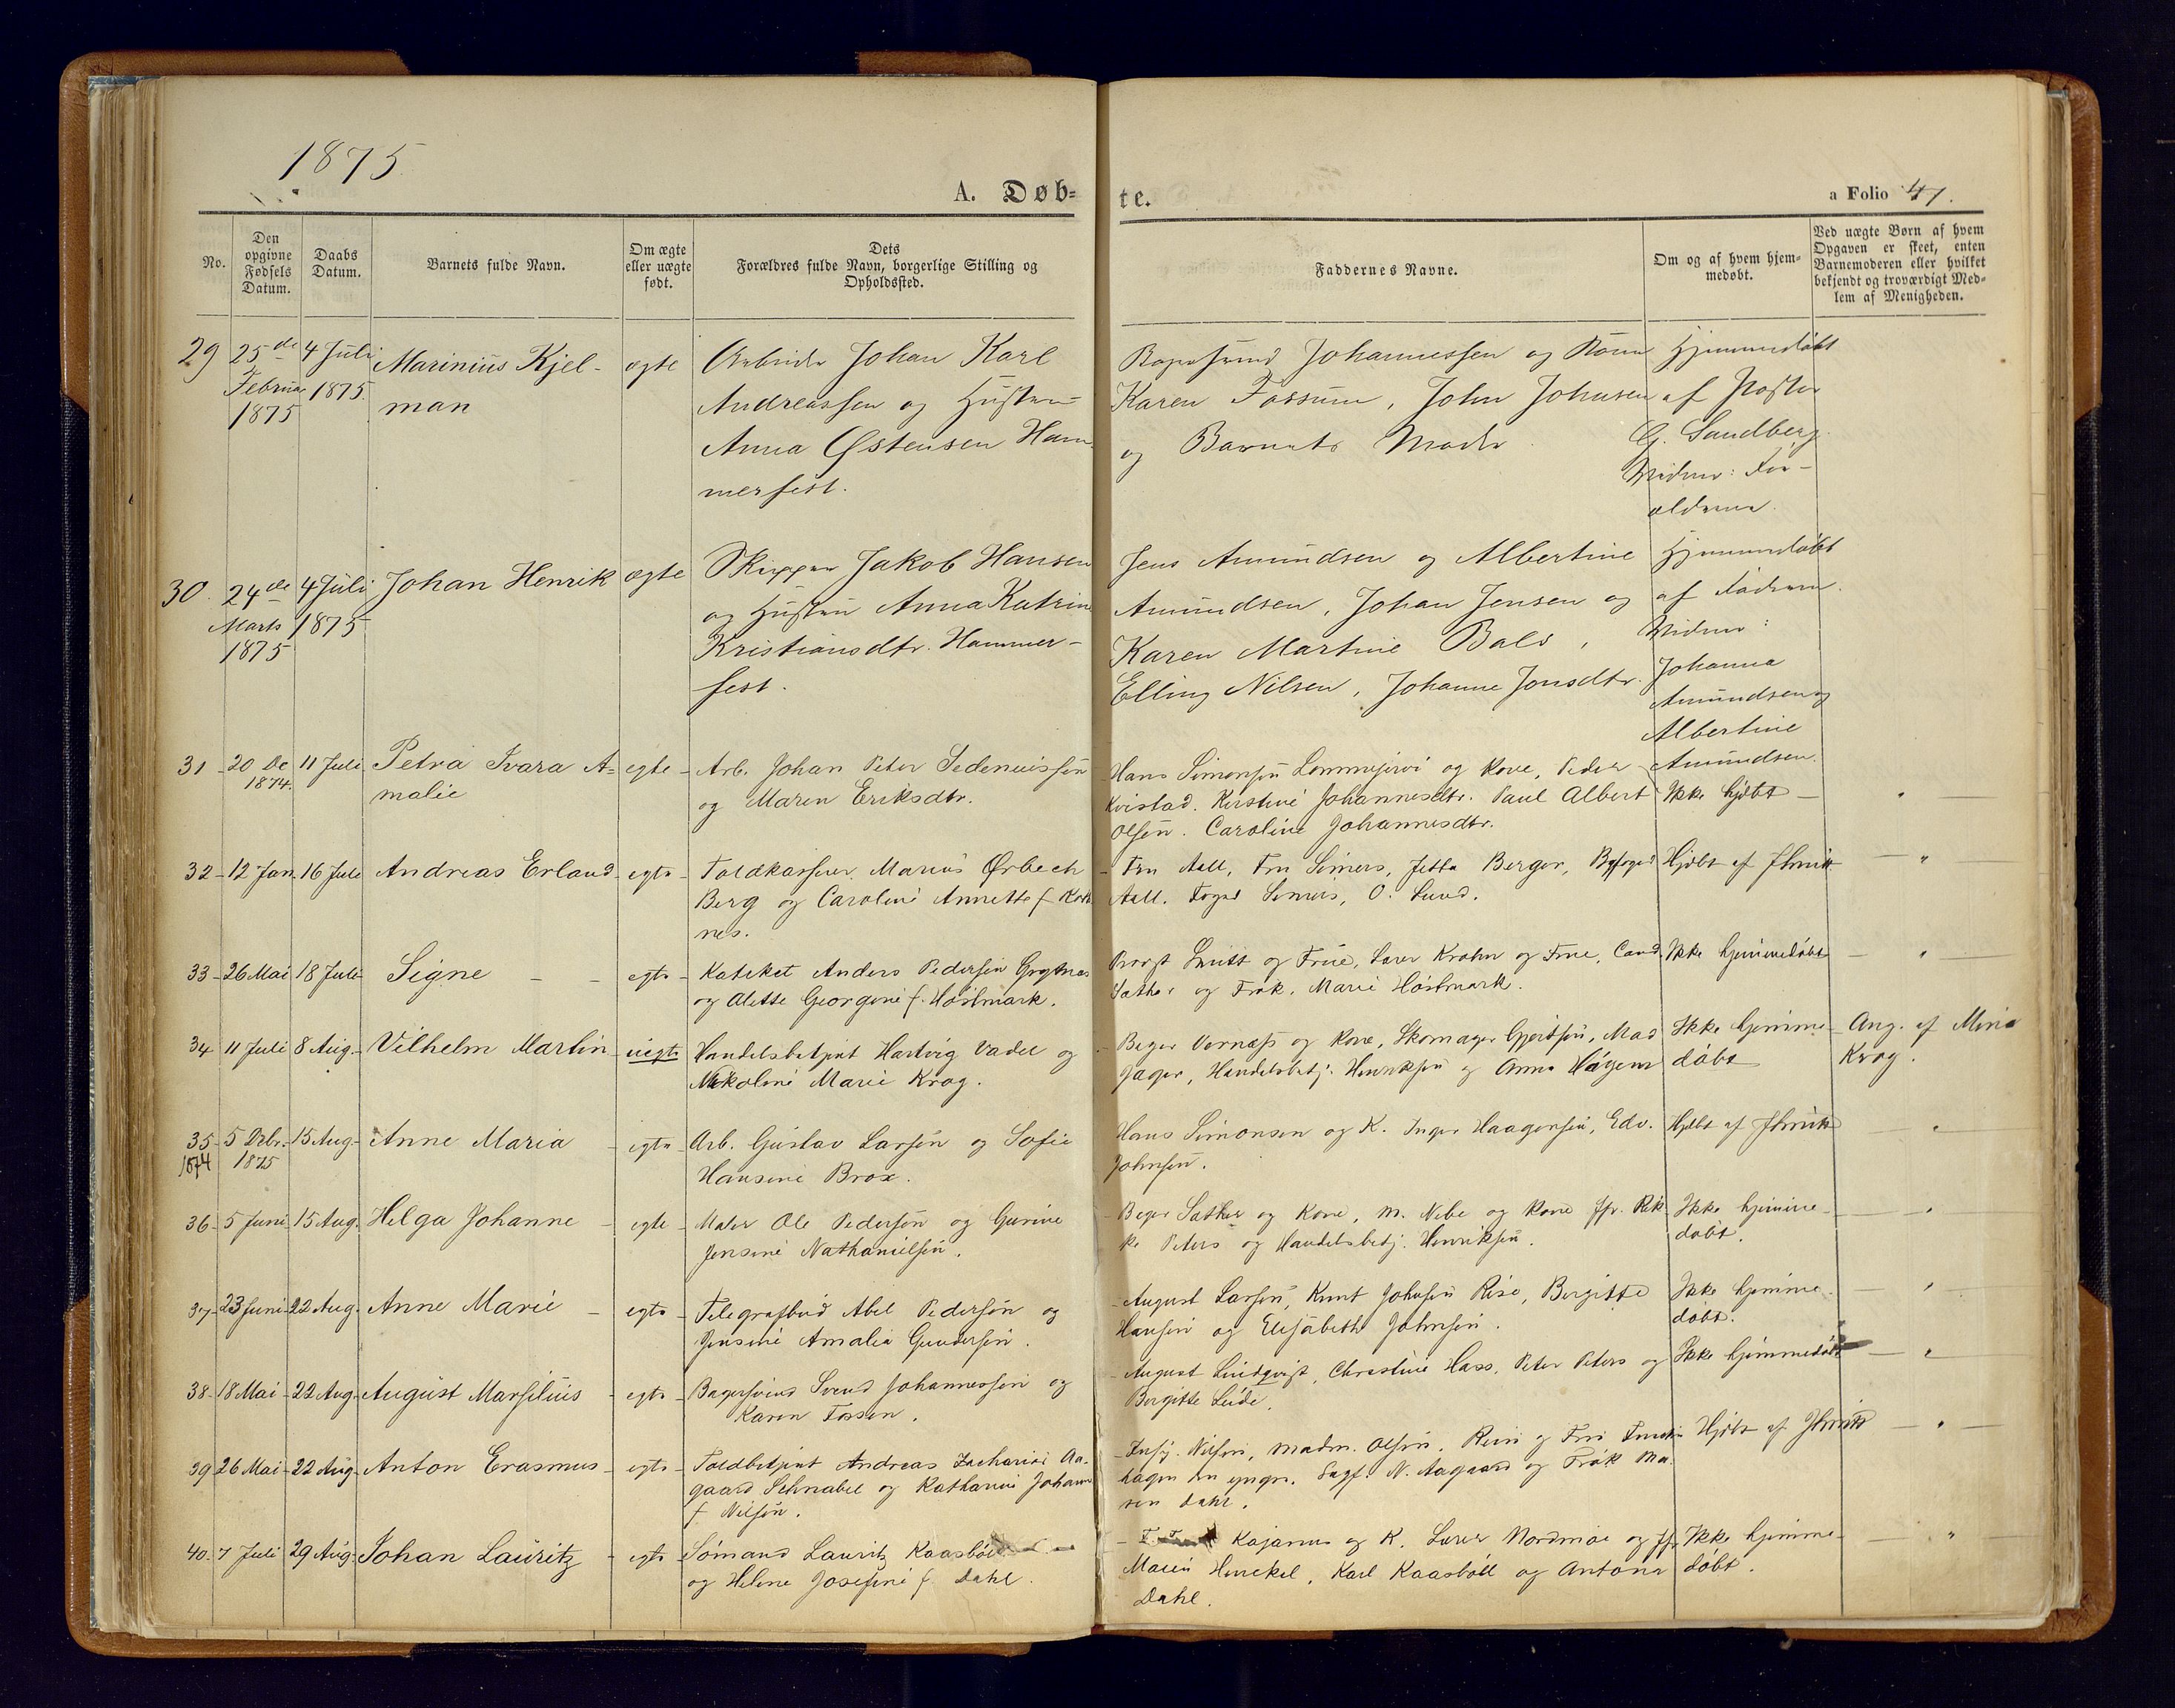 1875
A. Døb-
te.
a Folio 41.
No.
Den
opgivne
Fødsels
Datum.
Daabs
Datum.
Barnets fulde Navn.
Om ægte
eller uægte
født.
Dets
Forældres fulde Navn, borgerlige Stilling og
Opholdssted.
Faddernes Navne.
Om og af hvem hjem-
medøbt.
Ved uægte Børn af hvem
Opgaven er skeet, enten
Barnemoderen eller hvilket
bekjendt og troværdigt Med-
lem af Menigheden.
29
25de
Februar
1875
4 Juli
1875.
Marinius Kjel-
man
ægte
Arbeider Johan Karl
Andreassen og Hustru
Anna Østensen Ham
merfest.
Johannessen og Kone
Karen Fossum, John Johnsen
og Barnets Moder
Hjemmedøbt
af Pastor
G. Sandberg.
Vidner: For-
ældrene.
30.
24de
Marts
1875
4 Juli
1875
Johan Henrik
ægte
Skipper Jakob Hansen
og Hustru Anna Katrine
Kristiansdtr. Hammer-
fest.
Jens Amundsen og Albertine
Amundsen, Johan Jensen og
Karen Martine Bals,
Elling Nilsen, Johanne Jonsdtr.
Hjemmedøbt
af Faderen.
Vidner:
Johanna
Amundsen og
Albertine
Amundsen.
31
20 De
1874.
11 Juli
Petra Ivara A=
malie
egte
Arb. Johan Peter
og Maren Eriksdtr.
Hans Simonsen og Kone, Peder
Kvistad. Kirstine Johannesdtr. Paul Albert
Olsen. Caroline Johannesdtr.
Ikke hjdbt
"
32
12 Jan
16 Juli
Andreas Erland
egte
Toldkasserer Marius Ørbech
Berg og Caroline Annette f.
nes.
Fru Aall, Fru Simers, Jetta Berger, Byfoged
Aall. Foged Simers, O. Lund.
Hjdbt af
"
33
26 Mai
18 Juli
Signe
egte
Kateket Anders Pedersen Grøtnes
og Alette Georgine f. Høstmark.
Provst Smitt og Frue, Lærer Krohn og Frue, Cand.
Sæther og Frøk. Marie Høstmark.
Ikke hjemmedøbt
"
34
11 Juli
8 Aug.
Vilhelm Martin
uegte
Handelsbetjent Hartvig Vadel og
Nikoline Marie Krog.
Bager Vernæs og Kone, Skomager Gjertsen, Mad
Jager, Handelsbetj. Henriksen og Anna Hågensen
Ikke hjemme-
døbt
Ang. af
Krog.
35
1874
5 Dcbr.
1875
15 Aug.
Anne Maria
egte
Arb. Gustav Larsen og Sofie
Hansine Brox.
Hans Simonsen og K. Inger Haagensen, Edv.
Johnsen.
Hjdbt af
"
36
5 Juni
15 Aug.
Helga Johanne
egte
Maler Ole Pedersen og Gurine
Jensine Nathanielsen.
Bager Sæther og Kone, M. Nebe og Kone Jfr. Rik
ke Peters og Handelsbetj. Henriksen.
Ikke hjemme-
døbt.
"
37
23 Juni
22 Aug.
Anne Marie
egte
Telegrafbud Abel Pedersen og
Jensine Amalia Gundersen.
August Larsen, Knut Johnsen Rise, Bergitte
Hansen og Elisabeth Johnsen.
Ikke hjemme-
døbt.
"
38
18 Mai
22 Aug.
August Marsilius
egte
Bagersvend Svend Johannessen og
Karen Fossen.
August Lindqvist, Christine Hass, Peter Peters og
Bergitte Leide.
Ikke hjemmedøbt
"
39
26 Mai
22 Aug.
Anton Erasmus
egte
Toldbetjent Andreas Zacharias Aa-
gaard Schnabel og Katharine Johanne
f. Nilsen.
Nilsen, Madm. Olsen,
hagen den yngre, N. Aagaard og Frøk Ma-
ren Dahl.
Hjdbt af
"
40
7 Juli
29 Aug.
Johan Lauritz
egte
Sømand Lauritz Kaasbøll
og Helene Josefine f. Dahl.
Kajanus og K. Lærer Nordmoe og Jfr
Maren Henckel, Karl Kaasbøll og Antona
Dahl.
Ikke hjemme-
døbt.
"